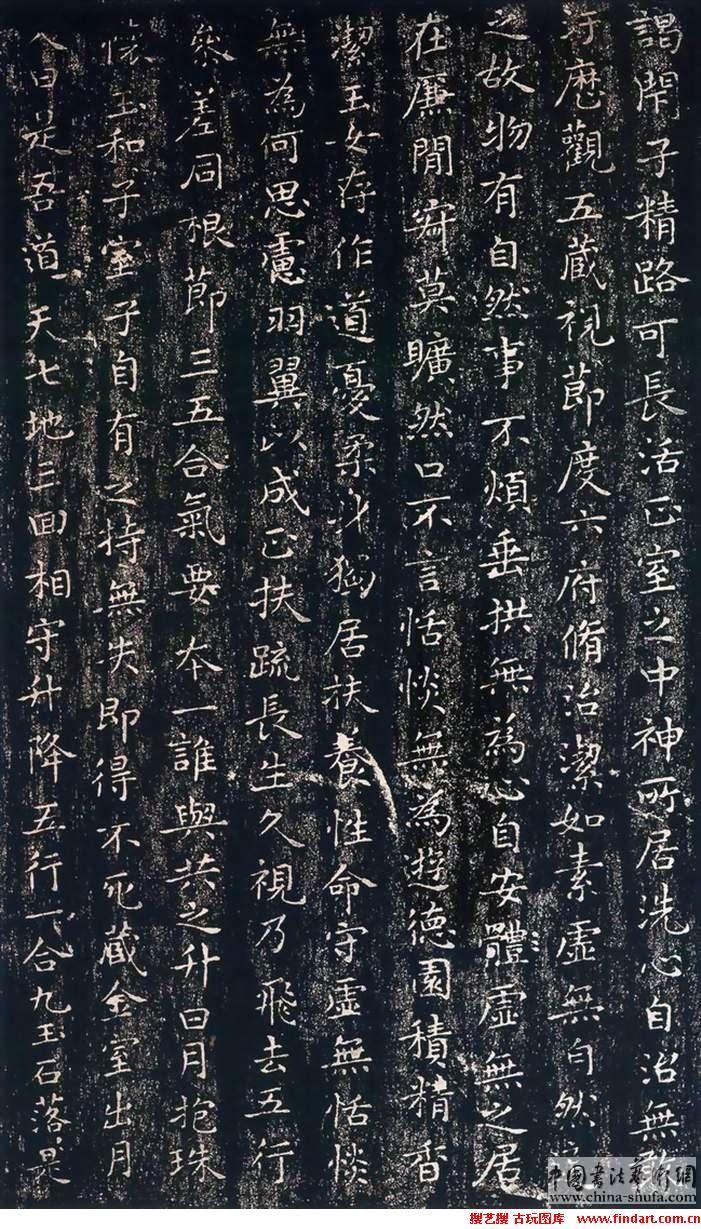 謁閇子精路可長活正室之中神所居洗心自治無
汙歷觀五藏視節度六府脩治潔如素虛無自然
之故物有自然事不煩垂拱無為心自安體虛無之居
在廉間寂莫曠然口不言恬惔無為遊德園積精香
潔玉女存作道憂柔身獨居扶養性命守虛無恬惔
無為何思慮羽翼以成正扶疏長生久視乃飛去五行
參差同根節三五合氣要本一誰與共之升日月抱珠
懷玉和子室子自有之持無失即得不死藏金室出月
入日是吾道天七地三回相守升降五行一合九玉石落〻是
中國書法藝術網
www.china-shufa.com
搜艺搜 古玩图库 www.findart.com.cn